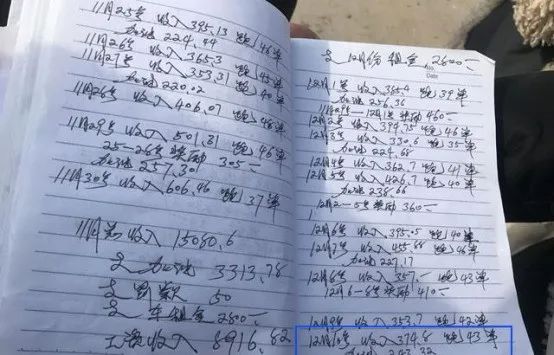 11月25号 收入395.13 跑48单
加油224.44
11月26号 收入365.3
11月27号 收入353.31 跑43单
加油220.02 跑40单
11月28号 收入406.07 跑48单
11月29号 收入501.31 跑46单
25-28号奖励 305.—
加油257.30
11月30号 收入606.46 跑37单
11月总收入15080.6
支 加油 3313.78
支 罚款 50
支 车租金 2800.—
工资收入 8916.82
支12月份租金 2800.—
No.
Date
12月1号 收入365.4 跑39单
加油256.36
11月29号—12月1号奖励460.—
12月2号 收入394.75 跑46单
12月3号 收入330.6 跑35单
加油224.68
12月4号 收入362.7 跑41单
12月5号 收入426.7 跑40单
加油238.66
12月2—5号奖励360.—
12月6号 收入395.05 跑40单
12月7号 收入455.88 跑46单
加油227.17
12月8号 收入357.— 跑43单
12月6—8号奖励410.—
12月9号 收入353.7 跑42单
12月10号 收入374.8 跑43单